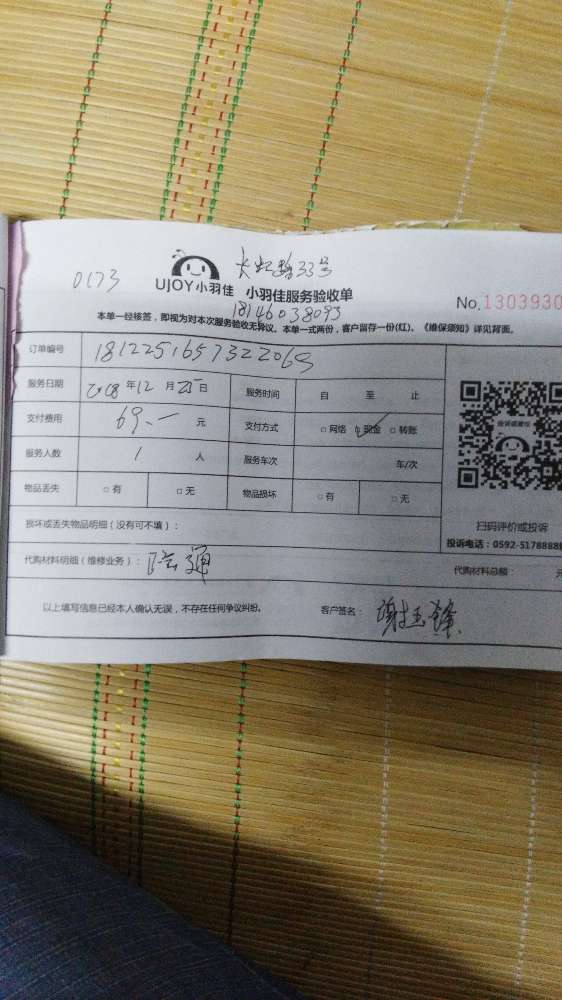 长虹路33号
0173
UJOY小羽佳 小羽佳服务验收单
18146038093
No.1303930
本单一经核签，即视为对本次服务验收无异议。本单一式两份，客户留存一份(红)。《维保须知》详见背面。
订单编号
服务日期 2018年12月25日 服务时间 自 至 止
支付费用 69.一 元 支付方式 □网络 □现金 □转账
服务人数 1 人 服务车次 车/次
物品丢失 □有 □无 物品损坏 □有 □无
扫码评价或投诉
损坏或丢失物品明细（没有可不填）：
投诉电话：0592-5178888
代购材料明细（维修业务）： 代购材料总额： 元
以上填写信息已经本人确认无误，不存在任何争议纠纷。 客户签名：